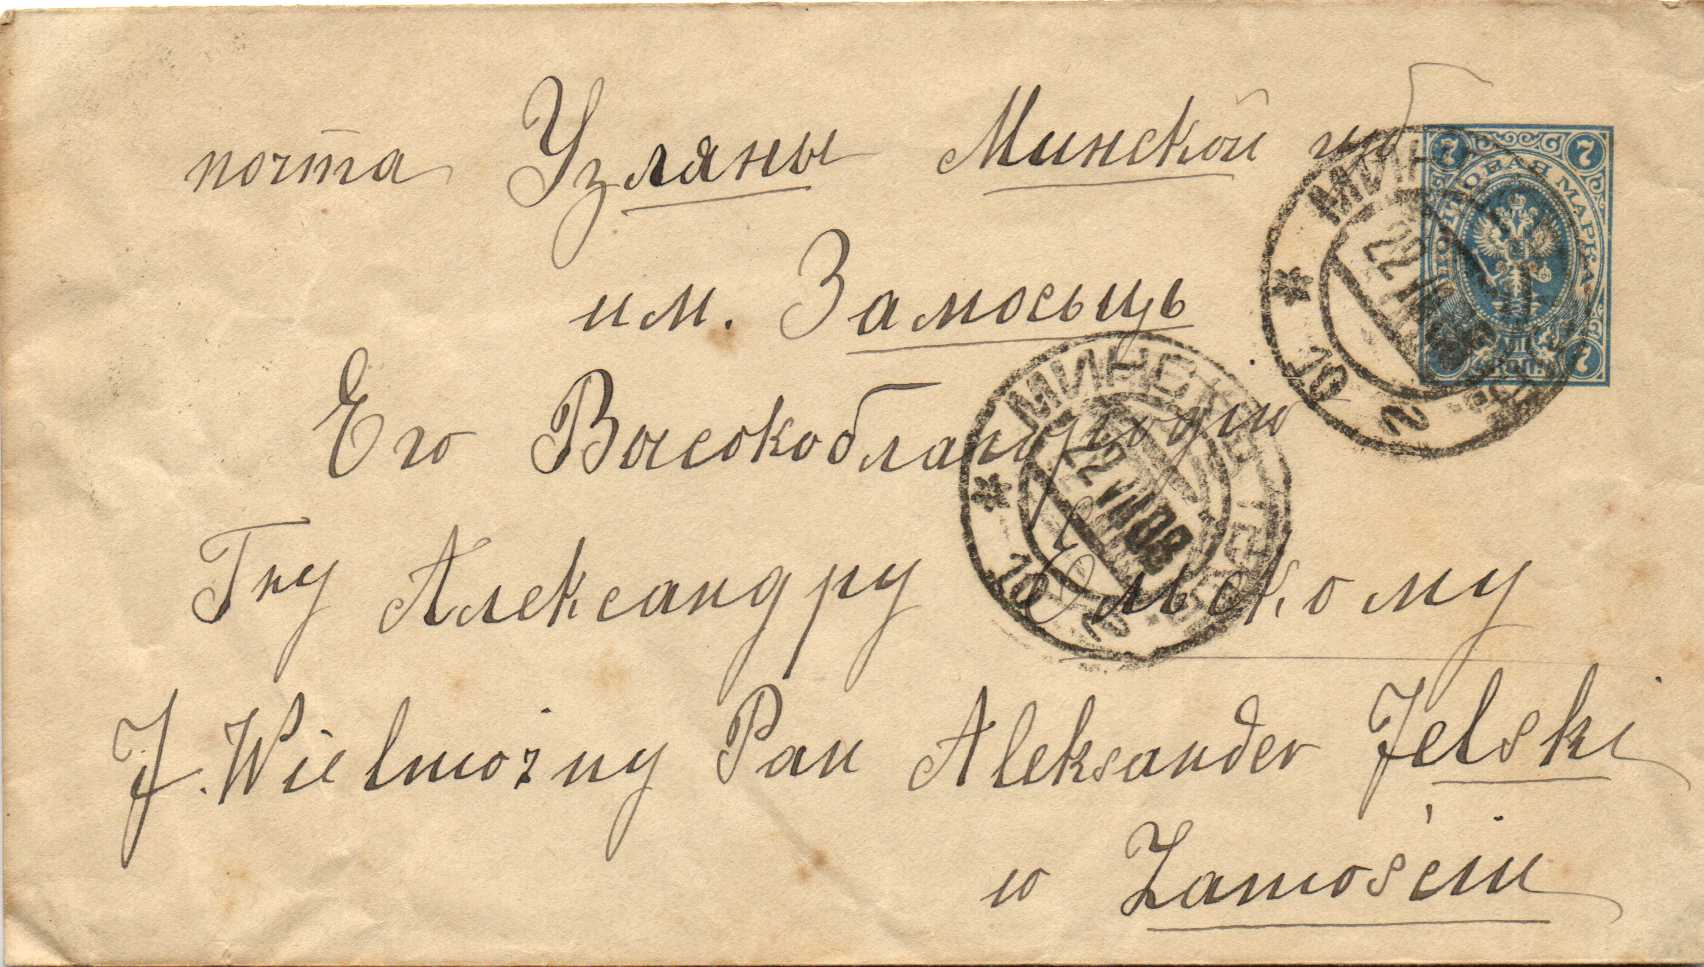 почта Узляны Минской губ
им. Замосьць
Его Высокоблагородію
Гну Александру Ельскому
J. Wielmożny Pan Aleksander Jelski
w Zamościu
7 7
МАРКА
7
МИНСКЪ
22 VII 08
10 2
МИНСКЪ
22 VII 08
10 2